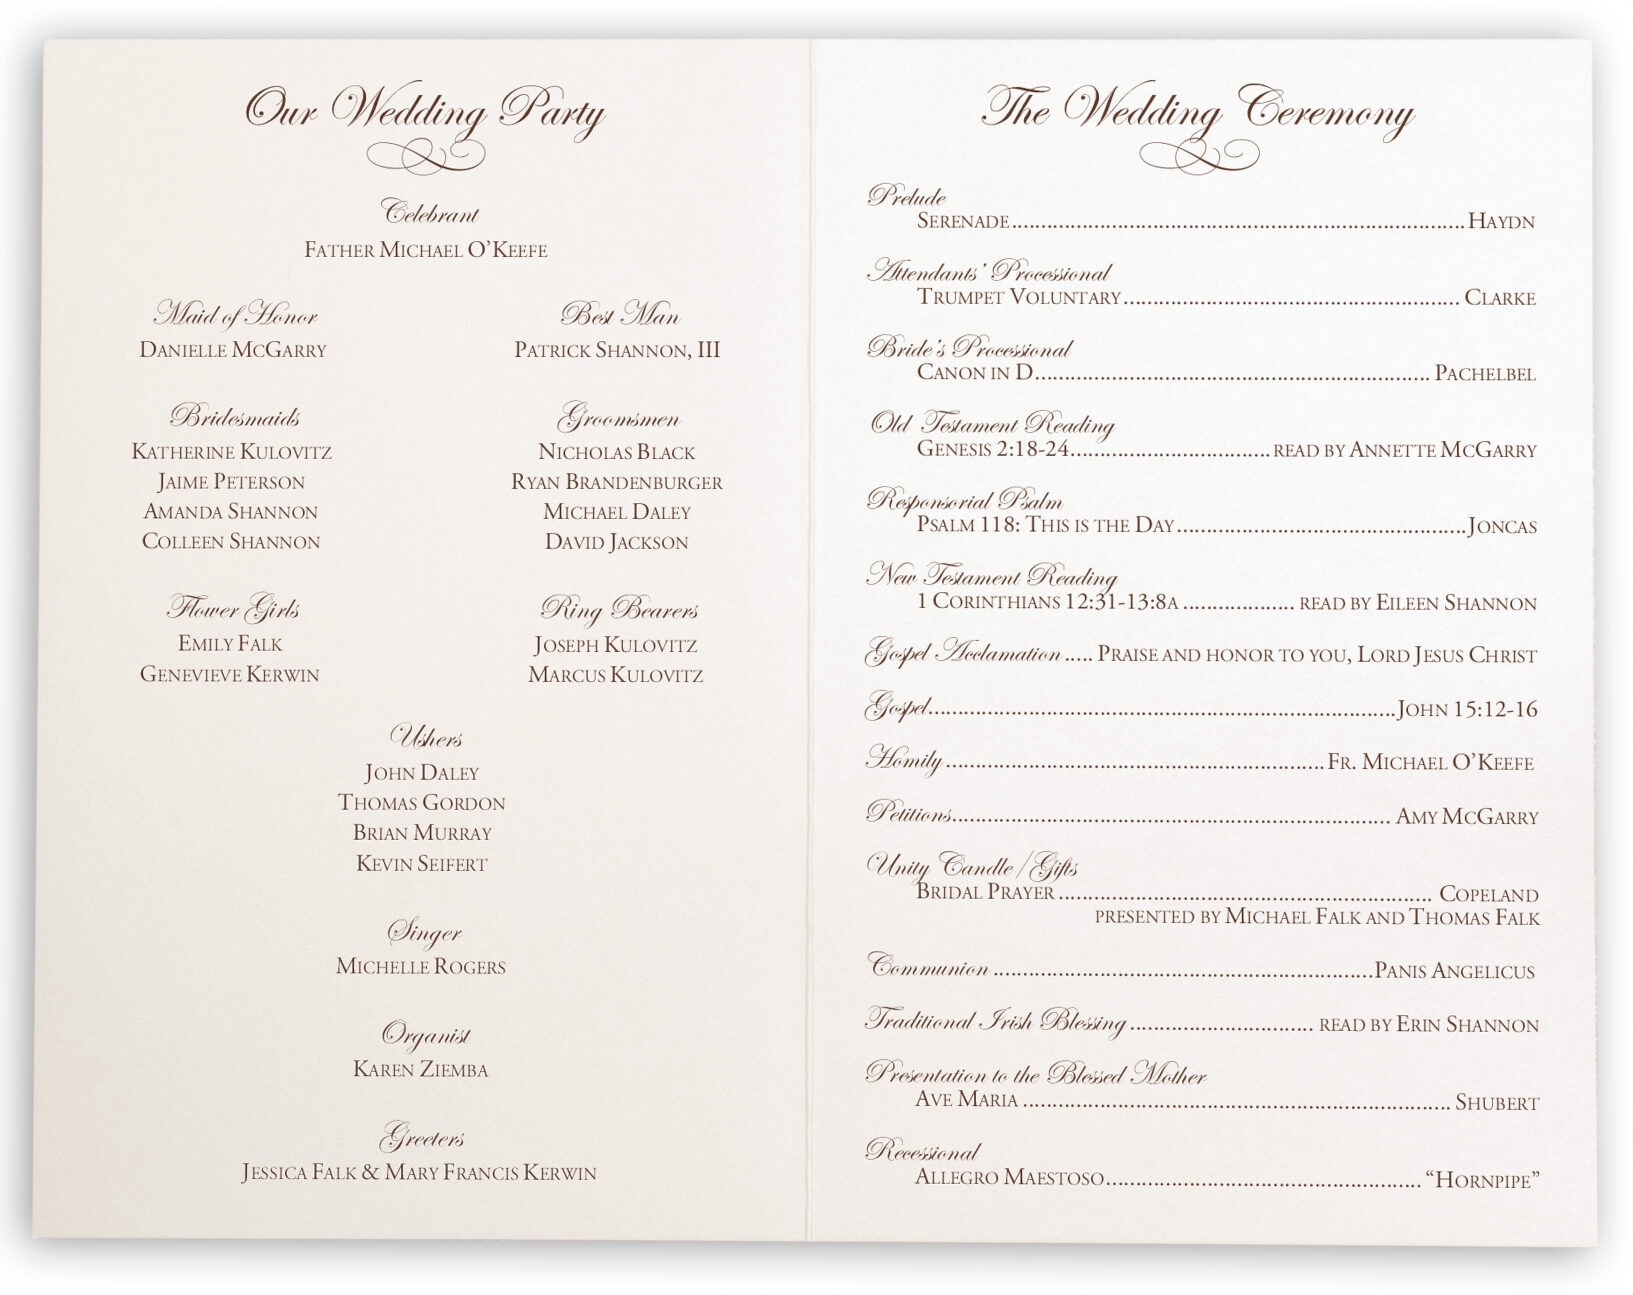 Our Wedding Party
Celebrant
Father Michael O'Keefe
Maid of Honor
Danielle McGarry
Best Man
Patrick Shannon, III
Bridesmaids
Katherine Kulovitz
Jaime Peterson
Amanda Shannon
Colleen Shannon
Groomsmen
Nicholas Black
Ryan Brandenburger
Michael Daley
David Jackson
Flower Girls
Emily Falk
Genevieve Kerwin
Ring Bearers
Joseph Kulovitz
Marcus Kulovitz
Ushers
John Daley
Thomas Gordon
Brian Murray
Kevin Seifert
Singer
Michelle Rogers
Organist
Karen Ziemba
Greeters
Jessica Falk & Mary Francis Kerwin
The Wedding Ceremony
Prelude
Serenade ........ Haydn
Attendants' Processional
Trumpet Voluntary ........ Clarke
Bride's Processional
Canon in D ........ Pachelbel
Old Testament Reading
Genesis 2:18-24 ........ read by Annette McGarry
Responsorial Psalm
Psalm 118: This is the Day ........ Joncas
New Testament Reading
1 Corinthians 12:31-13:8a ........ read by Eileen Shannon
Gospel Acclamation ..... Praise and honor to you, Lord Jesus Christ
Gospel ........ John 15:12-16
Homily ........ Fr. Michael O'Keefe
Petitions ........ Amy McGarry
Unity Candle/Gifts
Bridal Prayer ........ Copeland
presented by Michael Falk and Thomas Falk
Communion ........ Panis Angelicus
Traditional Irish Blessing ........ read by Erin Shannon
Presentation to the Blessed Mother
Ave Maria ........ Shubert
Recessional
Allegro Maestoso ........ "Hornpipe"